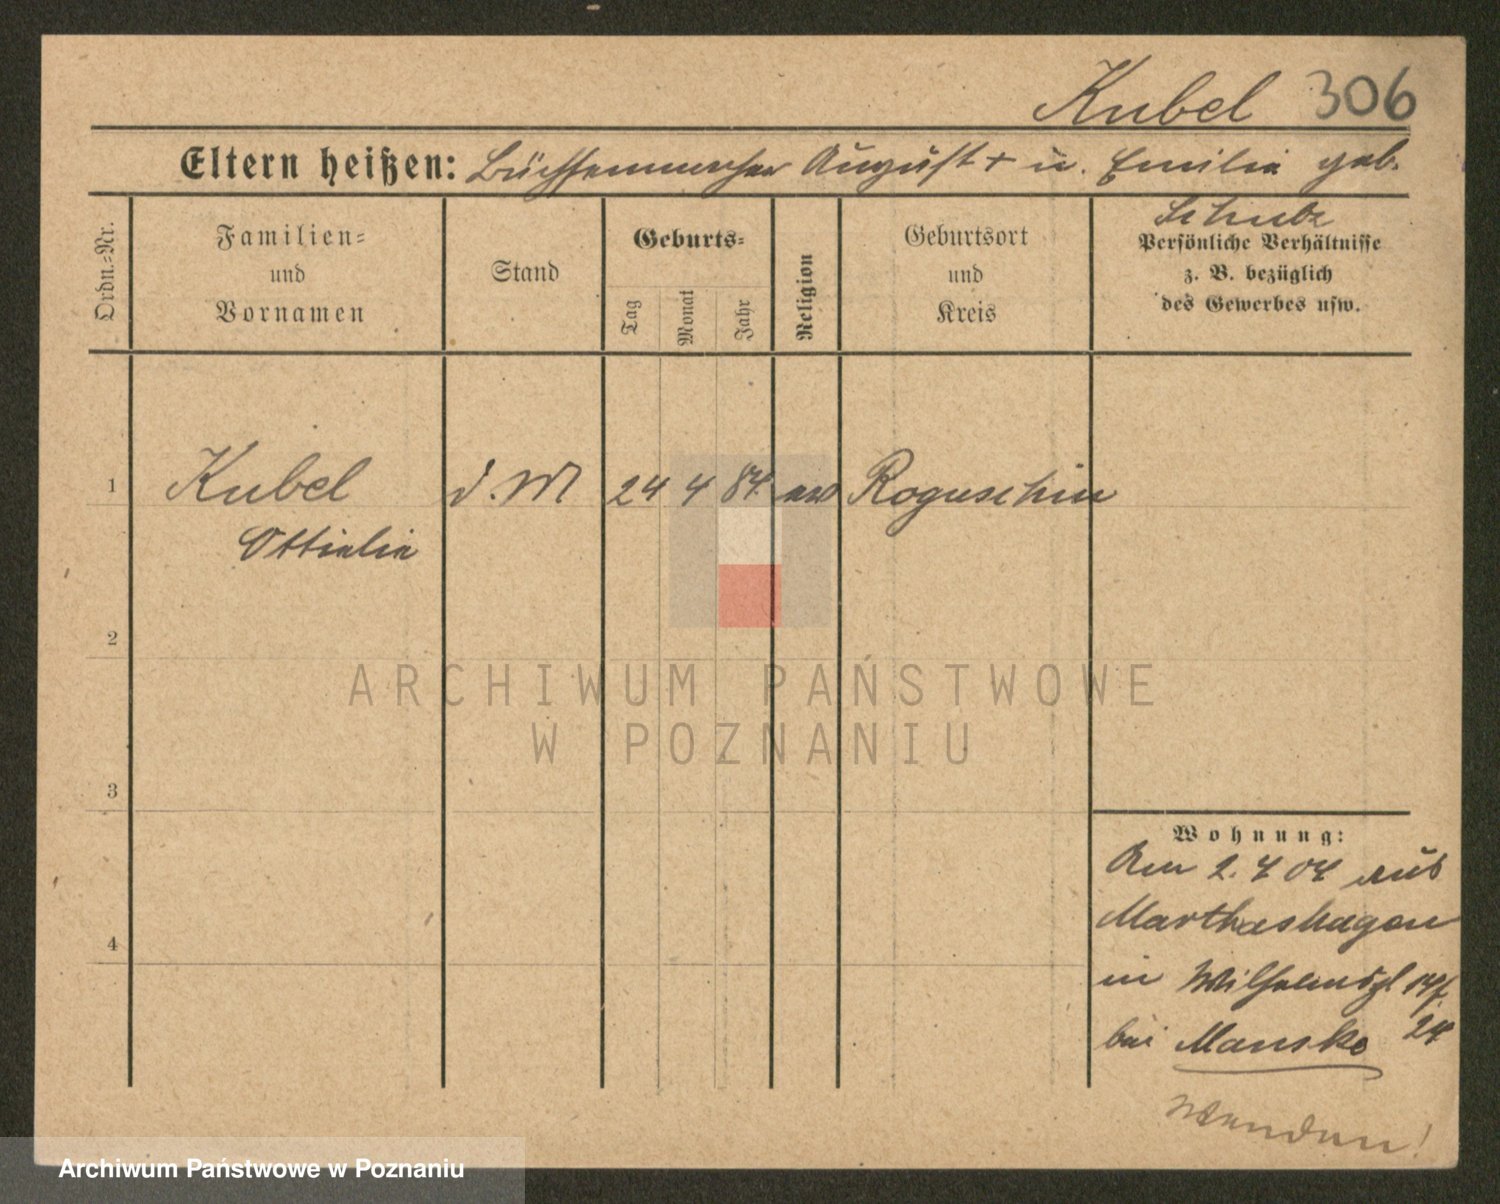 Kubel 306
Eltern heißen: Büchsenmacher August + u. Emilie geb.
Schulz
Ordn.=Nr.
Familien=
und
Vornamen
Stand
Geburts=
Tag
Monat
Jahr
Religion
Geburtsort
und
Kreis
Persönliche Verhältnisse
z. B. bezüglich
des Gewerbes usw.
1 Kubel d. M 24 4 84 Roguschin
Ottilie
2
3
4
Wohnung:
Am 2. 7 04 aus
Marthashagen
in
bei Manske 24
Wenden!
ARCHIWUM PAŃSTWOWE
W POZNANIU
Archiwum Państwowe w Poznaniu